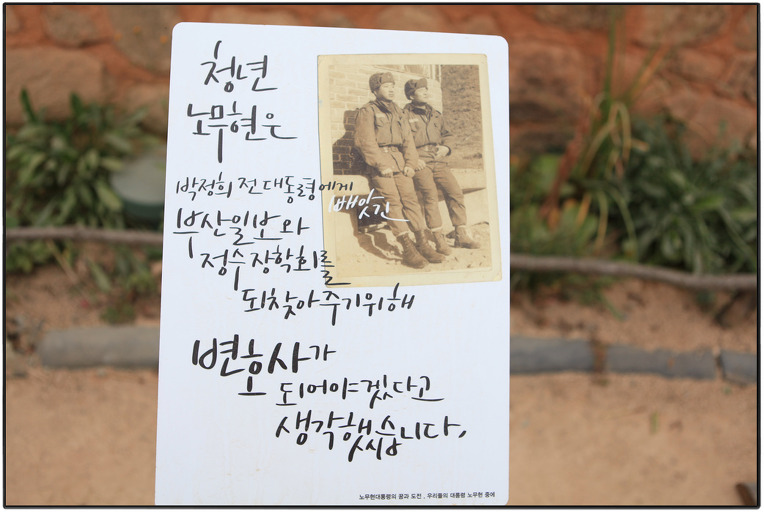 청년
노무현은
박정희 전 대통령에게
빼앗긴
부산일보와
정수장학회를
되찾아주기위해
변호사가
되어야겠다고
생각했습니다.
노무현대통령의 꿈과 도전, 우리들의 대통령 노무현 중에